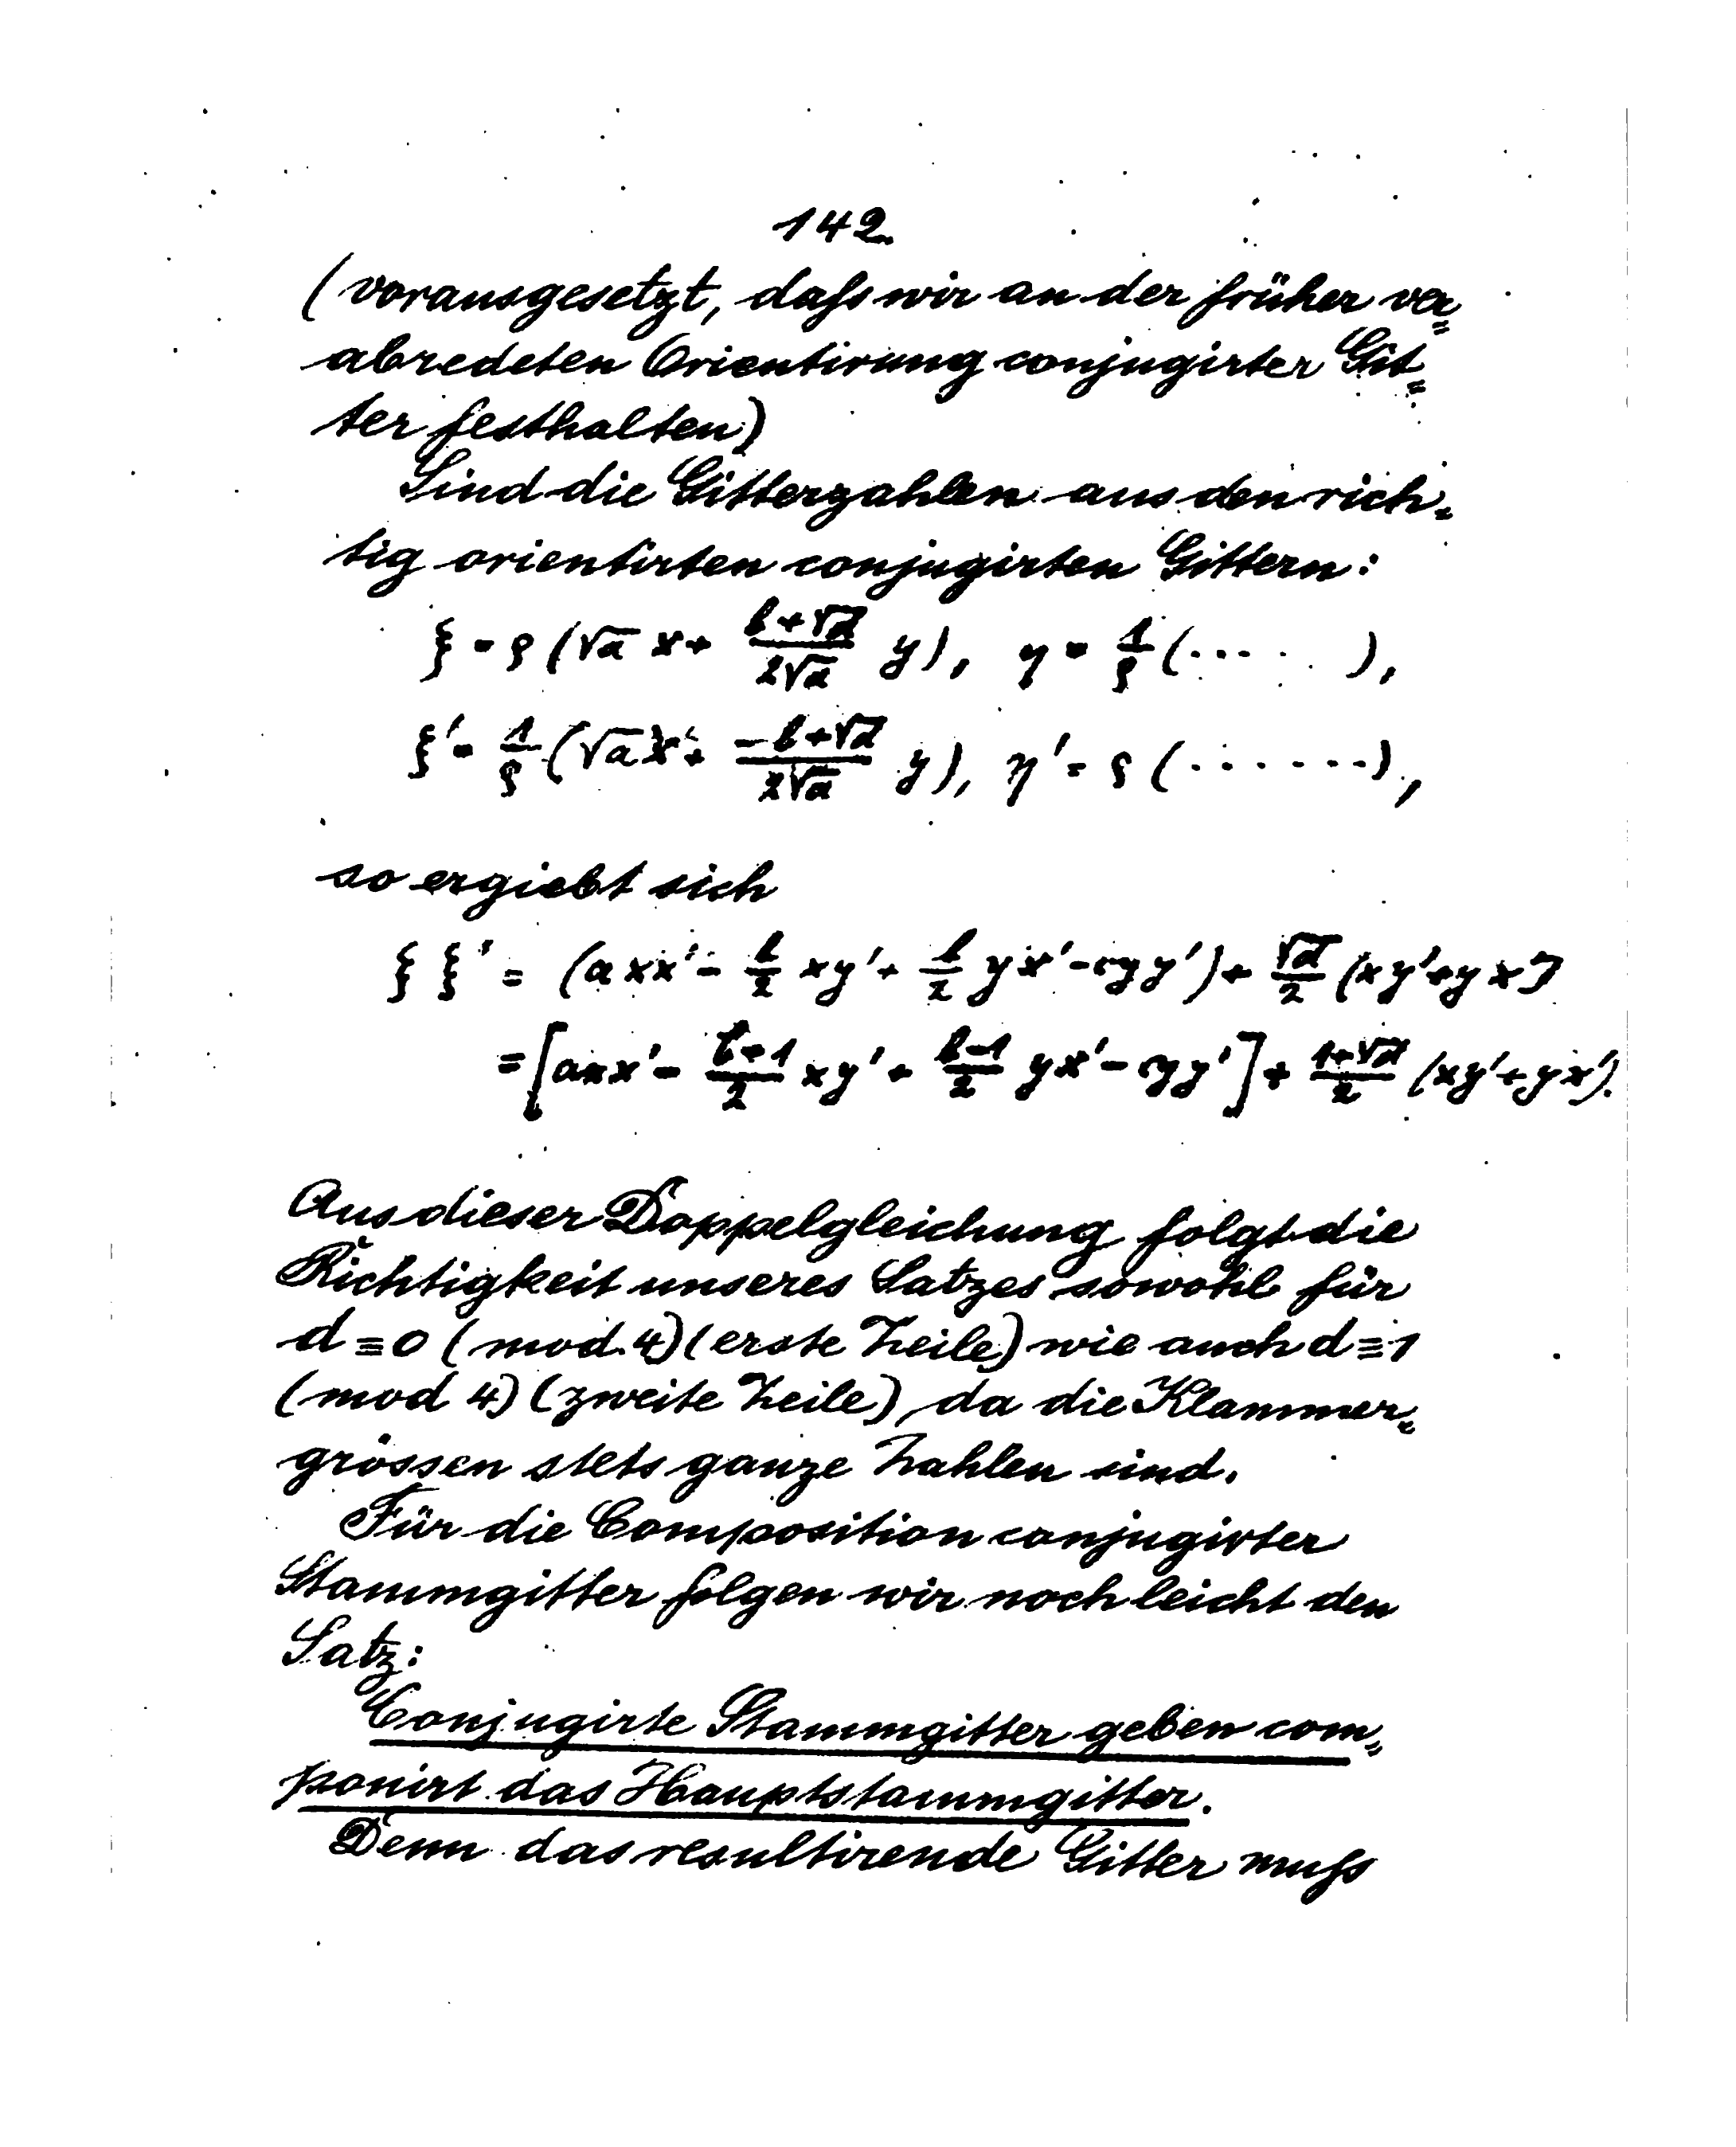 142
(vorausgesetzt, daſs wir an der früher ver=
abredeten Orientirung conjugirter Git=
ter festhalten)
Sind die Gitterzahlen aus den rich=
tig orientirten conjugirten Gittern:
ξ = ρ (√a x + (b+√d)/(2√a) y), η = 1/ρ (.....),
ξ' = 1/ρ (√a x' + (-b+√d)/(2√a) y), η' = ρ (......),
so ergiebt sich
ξ ξ' = (a x x' - b/2 x y' + b/2 y x' - c y y') + √d/2 (x y' + y x')
= [a x x' - (b+1)/2 x y' + (b-1)/2 y x' - c y y'] + (1+√d)/2 (x y' + y x').
Aus dieser Doppelgleichung folgt die
Richtigkeit unseres Satzes sowohl für
d ≡ 0 (mod. 4) (erste Zeile) wie auch d ≡ 1
(mod 4) (zweite Zeile), da die Klammer=
grössen stets ganze Zahlen sind.
Für die Composition conjugirter
Stammgitter folgen wir noch leicht den
Satz:
Conjugirte Stammgitter geben com=
ponirt das Hauptstammgitter.
Denn das resultirende Gitter muſs